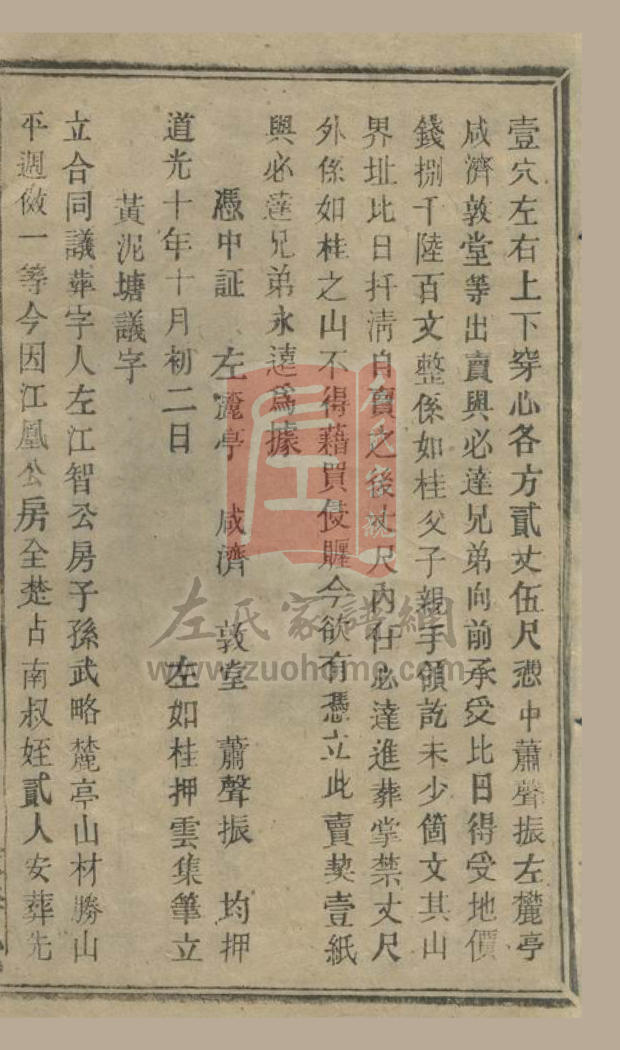 壹穴左右上下穿心各方貳丈伍尺憑中蕭聲振左麓亭
咸濟敦堂等出賣與必達兄弟向前承受比日得受地價
錢捌千陸百文整係如桂父子親手領訖未少箇文其山
界址比日扦清自賣之後丈尺內任必達進葬掌禁丈尺
外係如桂之山不得藉買侵賍今欲有憑立此賣契壹紙
與必達兄弟永遠為據
憑中証 左麓亭 咸濟 敦堂 蕭聲振 均押
道光十年十月初二日 左如桂押雲集筆立
黃泥塘議字
立合同議葬字人左江智公房子孫武略麓亭山材勝山
平週儆一等今因江凰公房全楚占南叔姪貳人安葬先
左氏家譜網
www.zuohome.com